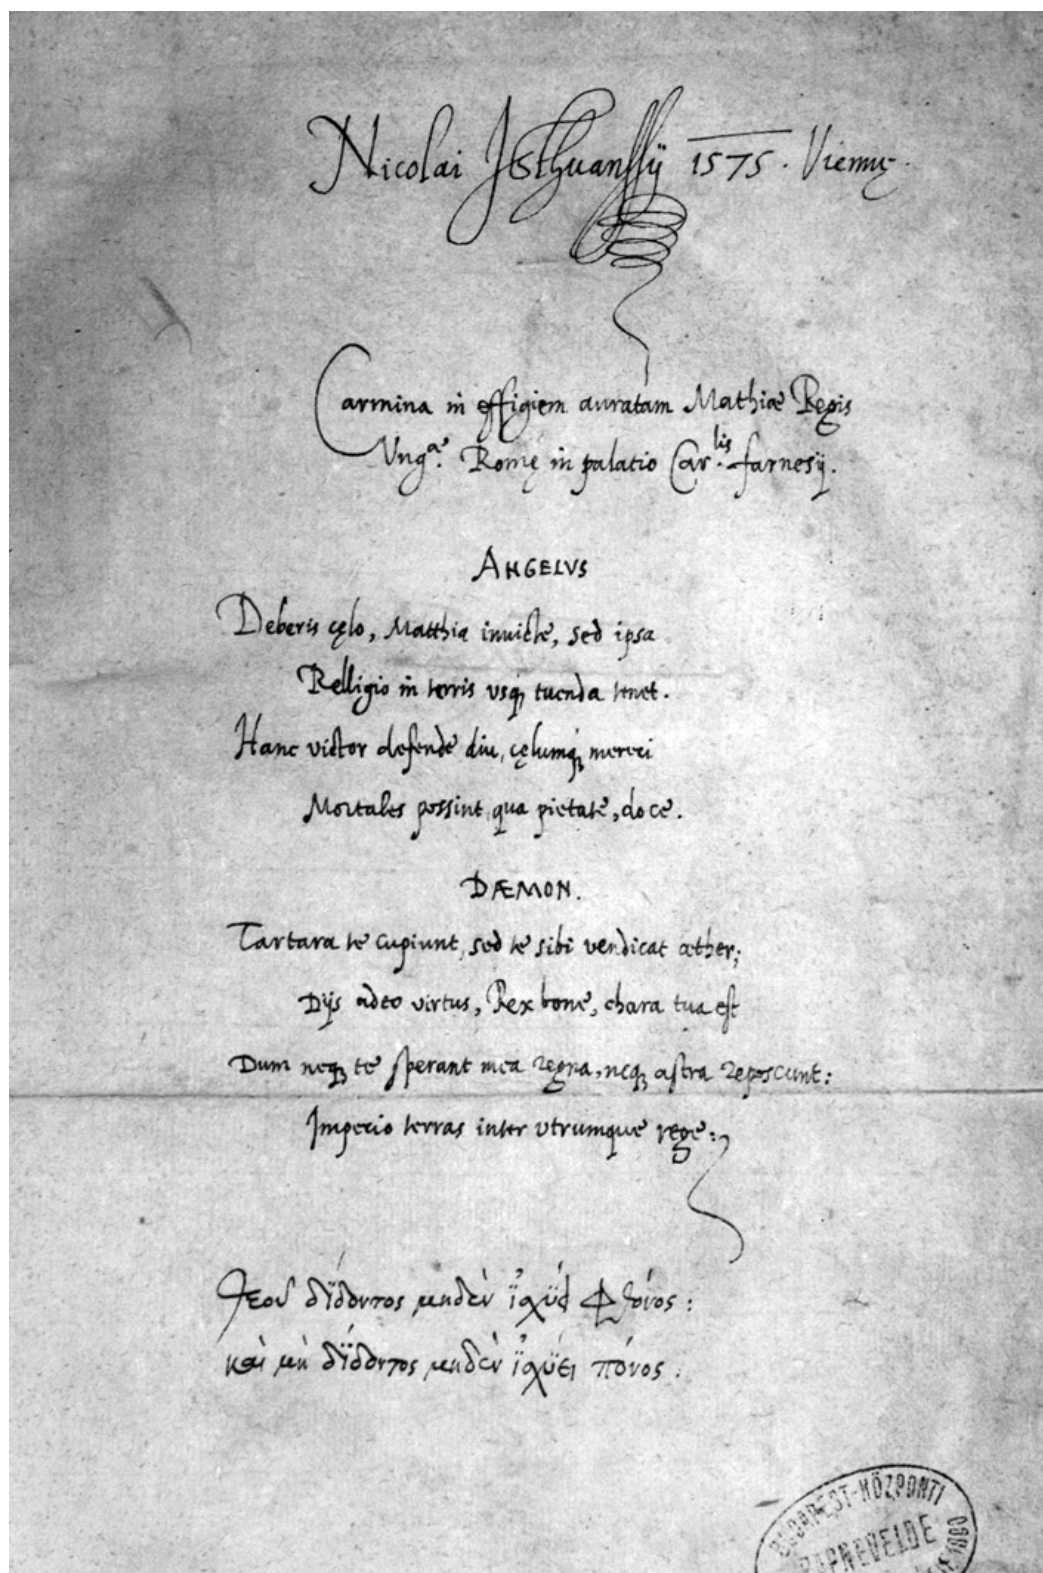 Nicolai Isthuanffÿ 1575. Viennę.
Carmina in effigiem auratam Mathiæ Regis
Vngᵃᵉ. Romę in palatio Car.ˡⁱˢ farnesÿ.
ANGELVS
Deberis cęlo, Matthia inuicte, sed ipsa
Relligio in terris vsq; tuenda tenet.
Hanc victor defende diu, cęlumq; mereri
Mortales possint, qua pietate, doce.
DÆMON.
Tartara te cupiunt, sed te sibi vendicat æther;
Dijs adeo virtus, Rex bone, chara tua est
Dum neq; te sperant mea regna, neq; astra reposcunt:
Imperio terras inter vtrumque rege:
Θεοῦ διδόντος μηδὲν ἰσχύει Φθόνος:
καὶ μὴ διδόντος μηδὲν ἰσχύει πόνος:
BUDAPEST-KÖZPONTI
PAPNEVELDE